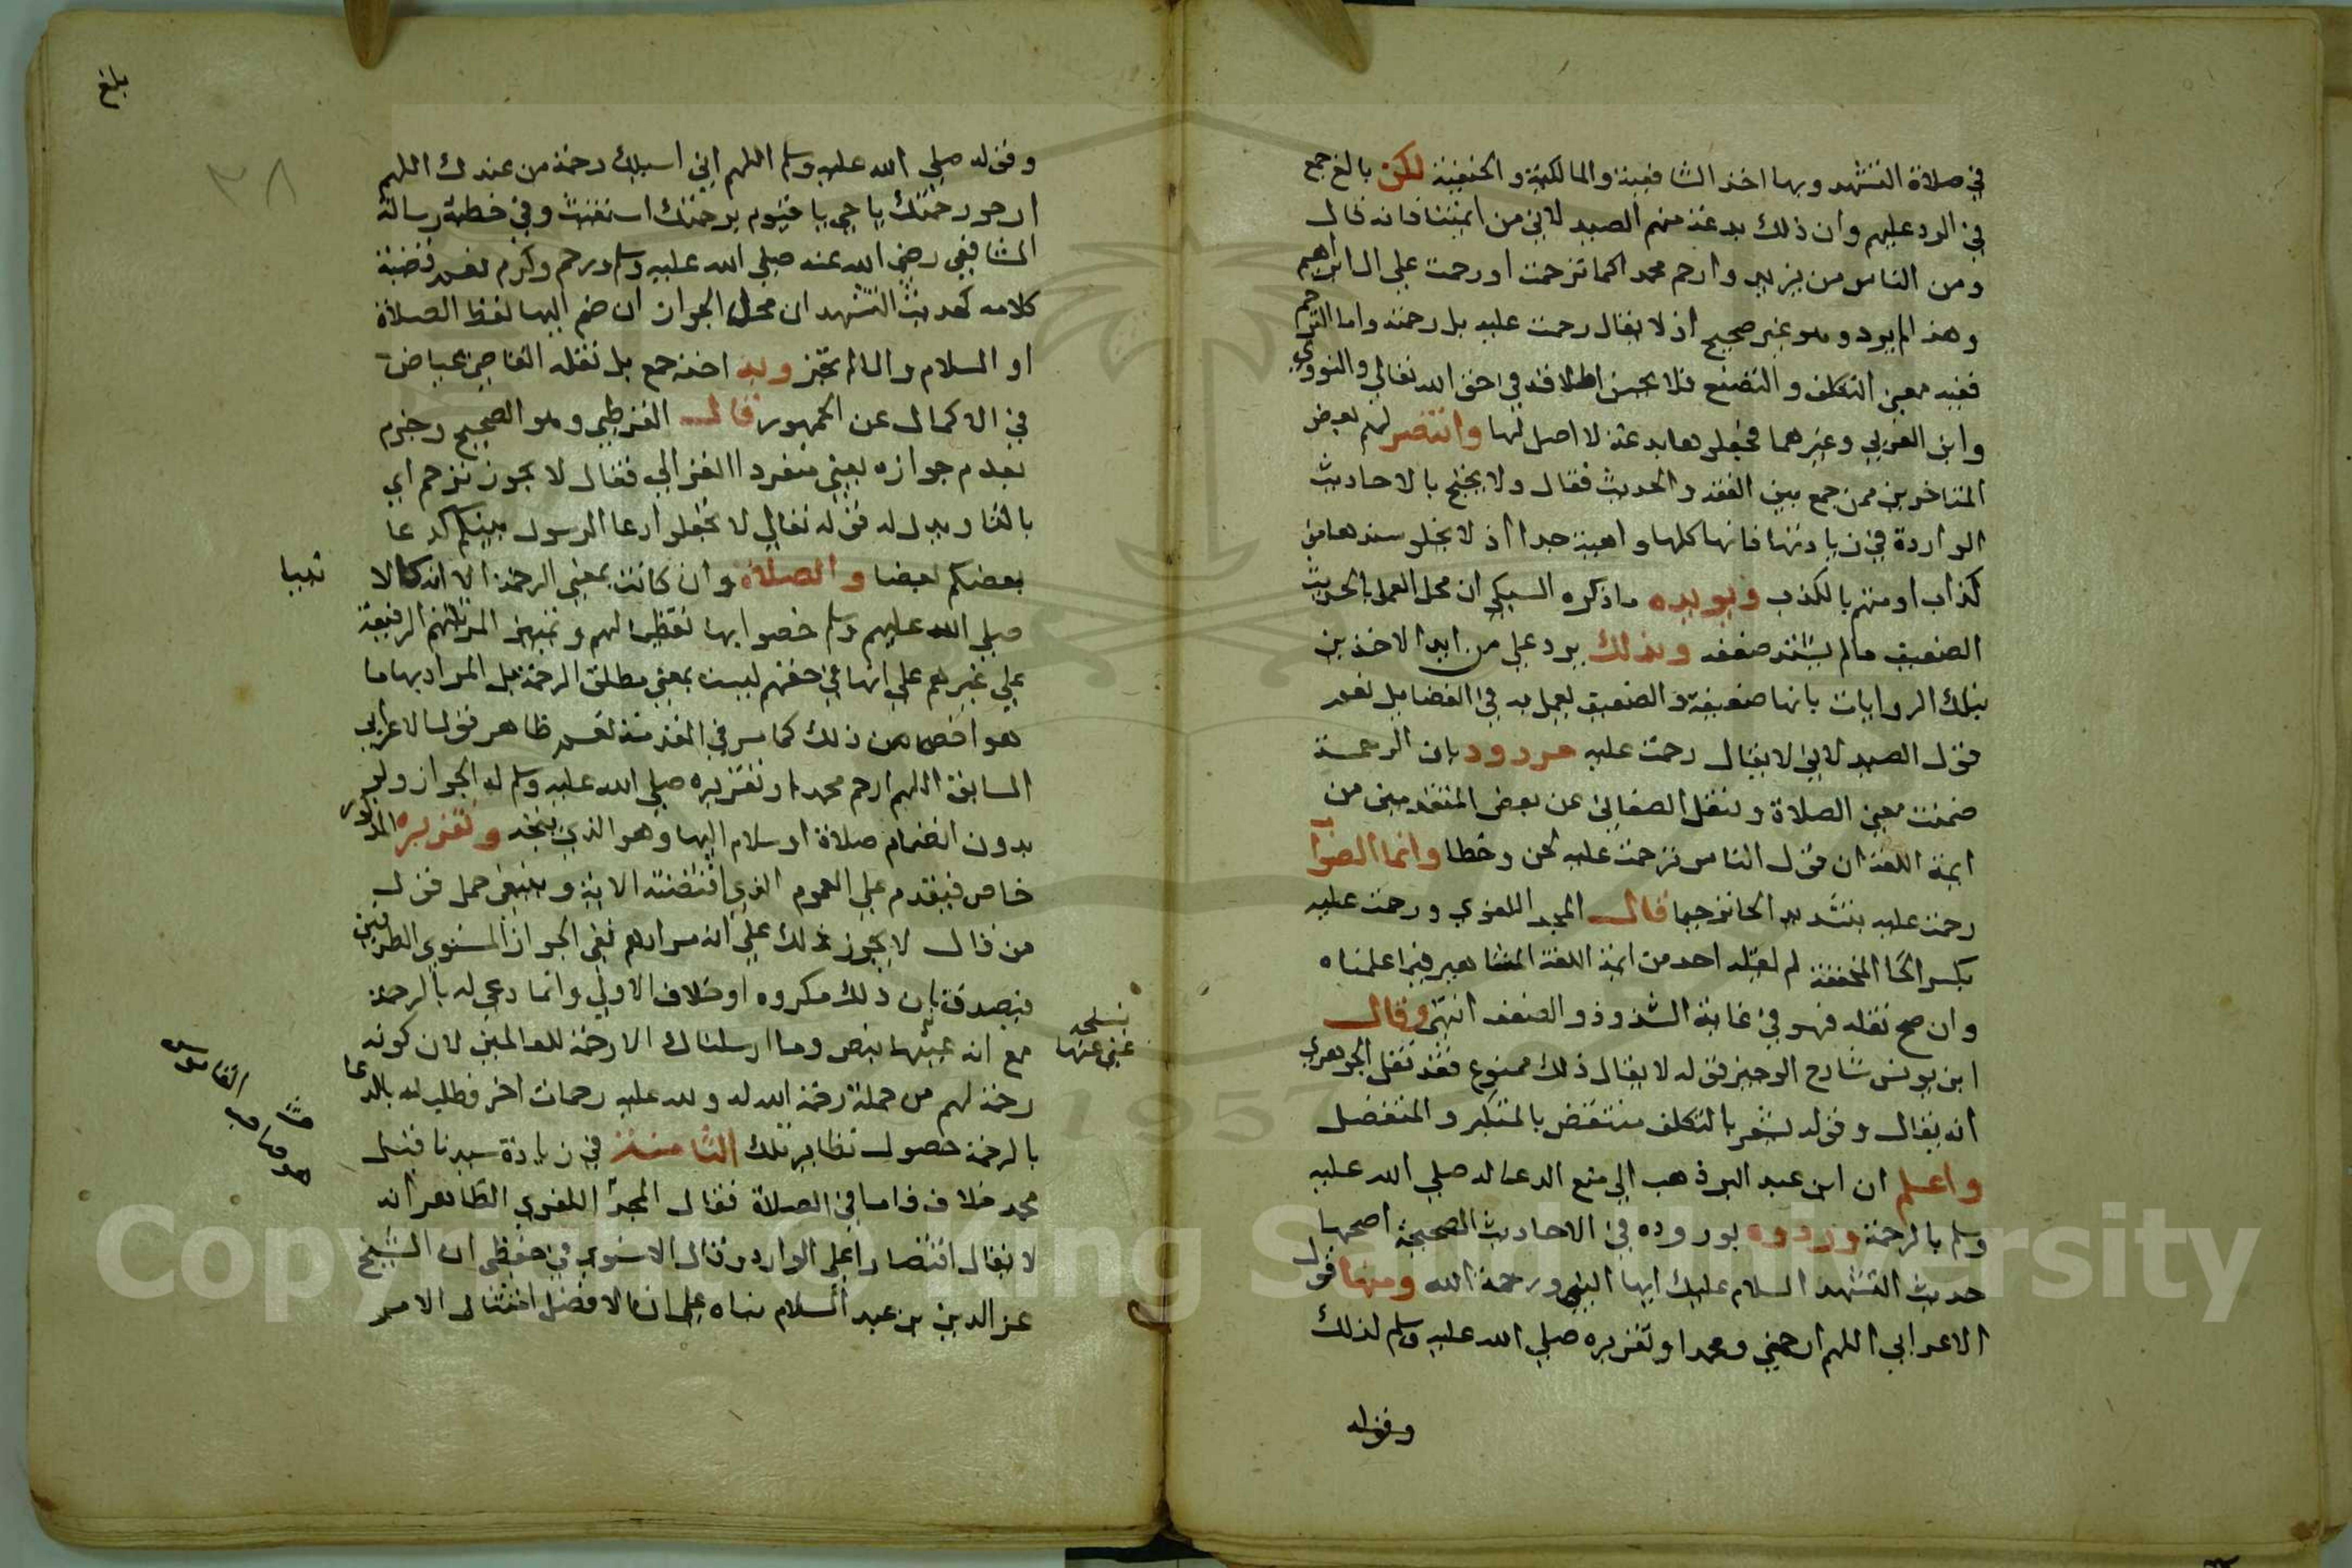 في صلاة التشهد وبها اخذ الشافعية والمالكية والحنفية لكن بالغ جمع
في الرد عليهم وان ذلك بدعة منهم الصيدلاني من ايمتنا فانه قال
ومن الناس من يزيد وارحم محمد اكما ترحمت او رحمت علي ال ابراهيم
وهذا لم يرد وهو غير صحيح اذ لا يقال رحمت عليه بل رحمته واما الترحم
ففيه معني التكلف والتصنع فلا يحسن اطلاقه في حق الله تعالي والنووي
وابن العربي وغيرهما فجعلوها بدعة لا اصل لها وانتصر لهم بعض
المتاخرين ممن جمع بين الفقه والحديث فقال ولا يحتج بالاحاديث
الواردة في زيادتها فانها كلها واهية جدا اذ لا يخلو سندها من
كذاب او متهم بالكذب ويويده ماذكره السبكي ان محل العمل بالحديث
الضعيف مالم يشتد ضعفه وبذلك يرد علي من ايد الاخذين
بتلك الروايات بانها ضعيفة والضعيف يعمل به في الفضايل نعم
قول الصيدلاني لا يقال رحمت عليه مردود بان الرحمة
ضمنت معني الصلاة ونقل الصغاني عن بعض المتقدمين من
ايمة اللغة ان قول الناس ترحمت عليه لحن وخطا وانما الصواب
رحمت عليه بتشديد الحا ترحيما قال المجد اللغوي ورحمت عليه
بكسر الحا المخففة لم يقله احد من ايمة اللغة المشاهير فيما علمناه
وان صح نقله فهو في غاية الشذوذ والضعف انتهي وقال
ابن يونس شارح الوجيز قوله لا يقال ذلك ممنوع فقد نقل الجوهري
انه يقال وقوله يشعر بالتكلف منتقض بالمتكبر والمتفضل
واعلم ان ابن عبد البر ذهب الي منع الدعا له صلي الله عليه
وسلم بالرحمة وردوه بوروده في الاحاديث الصحيحة اصحها
حديث التشهد السلام عليك ايها النبي ورحمة الله ومنها قول
الاعرابي اللهم ارحمني ومحمدا وتقريره صلي الله عليه وسلم لذلك
وقوله
بلغ
٣٨
وقوله صلي الله عليه وسلم اللهم اني اسيلك رحمة من عندك اللهم
ارجو رحمتك يا حي يا قيوم برحمتك استغيث وفي خطبة رسالة
الشافعي رضي الله عنه صلي الله عليه وسلم ورحم وكرم نعم قضية
كلامه كحديث التشهد ان محل الجواز ان ضم اليها لفظ الصلاة
او السلام والا لم تجز وبه اخذ جمع بل نقله القاضي عياض
في الاكمال عن الجمهور قال القرطبي وهو الصحيح وجزم
بعدم جوازه يعني منفردا الغزالي فقال لا يجوز ترحم اي
بالتا ويدل له قوله تعالي لا تجعلوا دعا الرسول بينكم كدعا
بعضكم بعضا والصلاة وان كانت بمعني الرحمة الا ان كالا
صلي الله عليهم وسلم خصوا بها تعظيما لهم وتمييزا لمرتبتهم الرفيعة
علي غيرهم علي انها في حقهم ليست بمعني مطلق الرحمة بل المراد بها ما
هو اخص من ذلك كما مر في المقدمة نعم ظاهر قول الاعرابي
السابق اللهم ارحم محمدا وتقريره صلي الله عليه وسلم له الجواز ولو
بدون انضمام صلاة او سلام اليها وهو الذي يتجه وتقريره المذكور
خاص فيقدم علي العموم الذي اقتضته الاية وينبغي حمل قول
من قال لا يجوز ذلك علي ان مرادهم نفي الجواز المستوي الطرفين
فيصدق بان ذلك مكروه او خلاف الاولي وانما دعي له بالرحمة
مع انه عينها بنص وما ارسلناك الا رحمة للعالمين لان كونه
رحمة لهم من جملة رحمة الله له ولله عليه رحمات اخر فطلب له بالدعا
بالرحمة حصول نظاير تلك الثامنة في زيادة سيدنا قبل
محمد خلاف فاما في الصلاة فقال المجد اللغوي الظاهر انه
لا يقال اقتصارا علي الوارد وقال الاسنوي في حفظي ان الشيخ
عز الدين بن عبد السلام بناه علي ان الافضل امتثال الامر